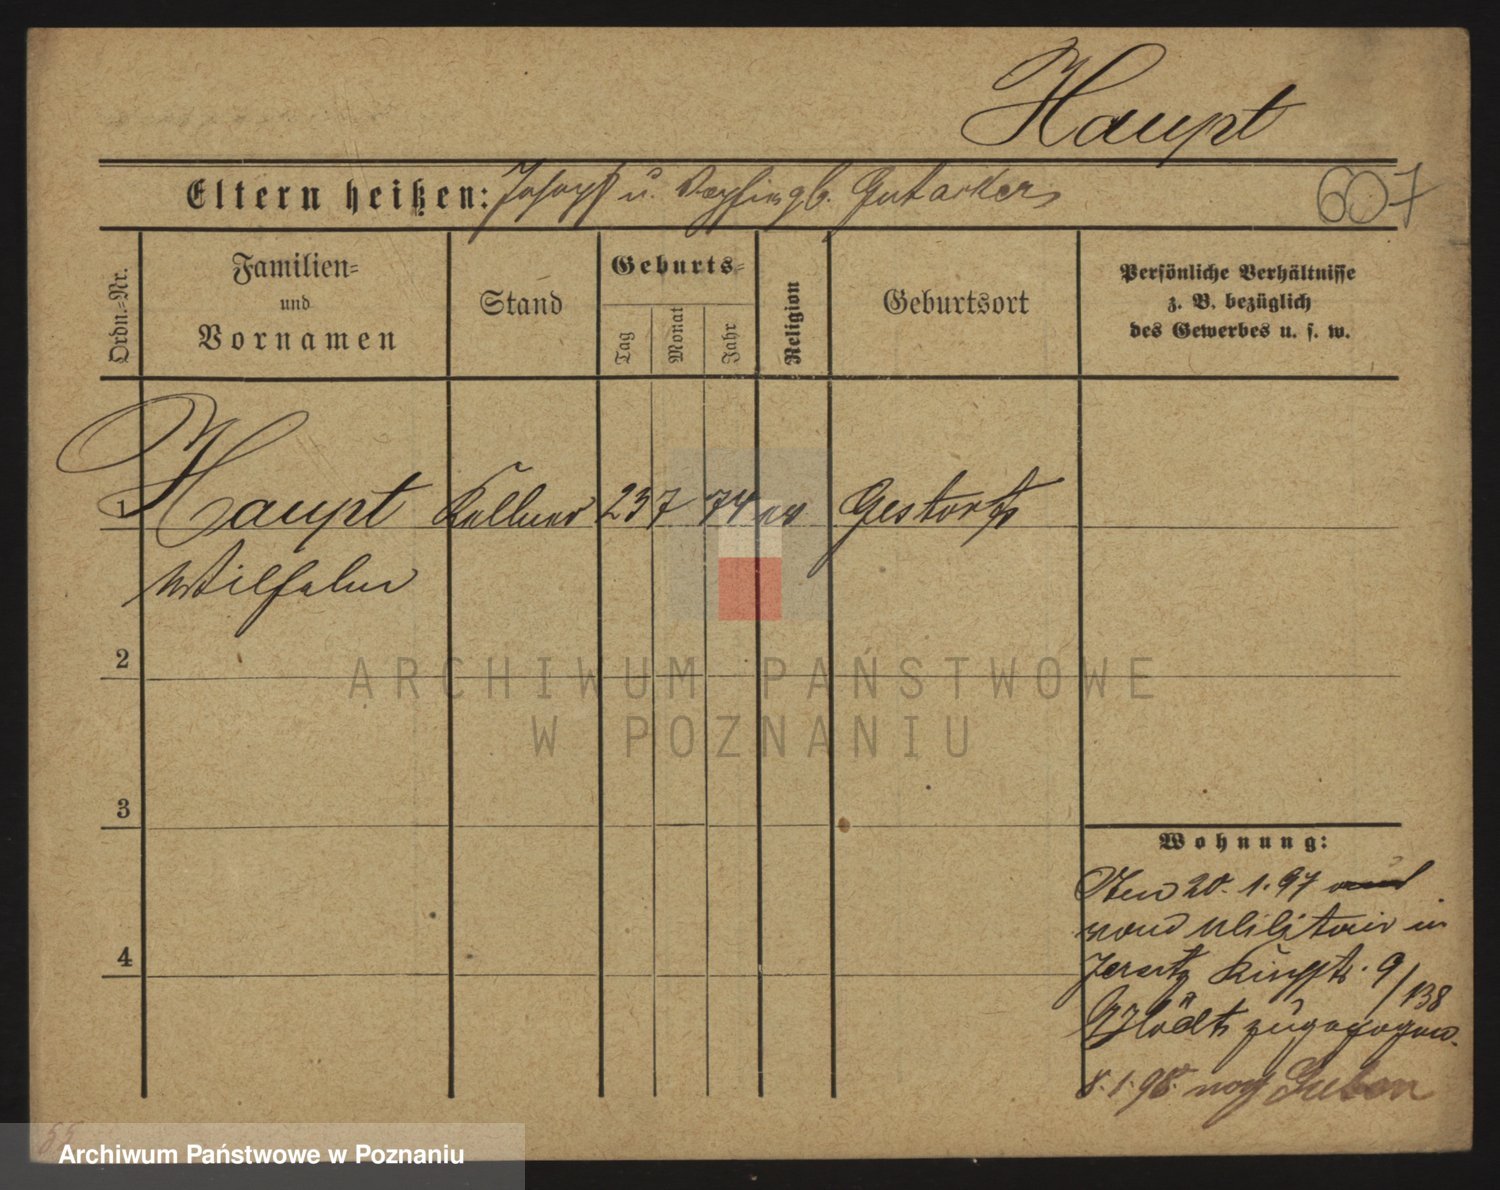 Haupt
Eltern heißen: Joseph u. gb.
607
Ordn.-Nr.
Familien-
und
Vornamen
Stand
Geburts-
Tag
Monat
Jahr
Religion
Geburtsort
Persönliche Verhältnisse
z. B. bezüglich
des Gewerbes u. s. w.
1 Haupt Kellner 23 7 74 ev Gestorf
Wilhelm
2
3
4
Wohnung:
Den 20.1.97
vom Militair in
Jersitz 9/138
zugezogen.
8.1.98. nach Guben
ARCHIWUM PAŃSTWOWE
W POZNANIU
55
Archiwum Państwowe w Poznaniu